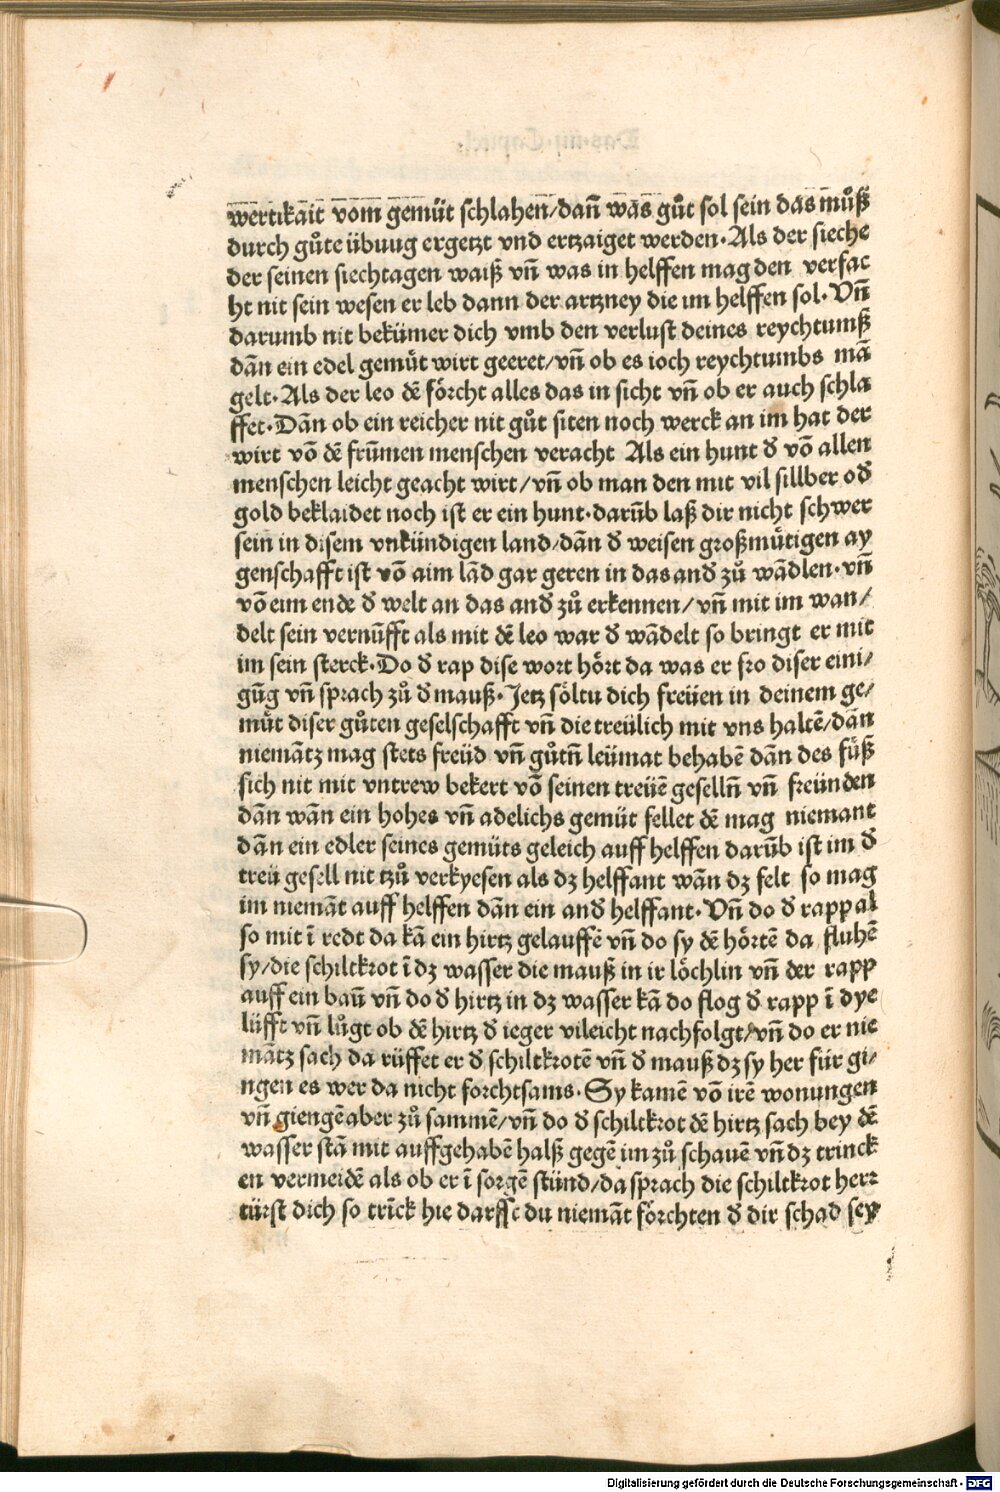 wertikait vom gemüt schlahen/dañ was gůt sol sein das můß
durch gůte übuug ergetzt vnd ertzaiget werden·Als der sieche
der seinen siechtagen waiß vñ was in helffen mag den verfac
ht nit sein wesen er leb dann der artzney die im helffen sol·Vñ
darumb nit bekümer dich vmb den verlust deines reychtumß
dãn ein edel gemüt wirt geeret/vñ ob es ioch reychtumbs mã
gelt·Als der leo dẽ förcht alles das in sicht vñ ob er auch schla
ffet·Dãn ob ein reicher nit gůt siten noch werck an im hat der
wirt võ dẽ frũmen menschen veracht Als ein hunt đ võ allen
menschen leicht geacht wirt/vñ ob man den mit vil sillber ođ
gold beklaidet noch ist er ein hunt·darũb laß dir nicht schwer
sein in disem vnkündigen land/dãn đ weisen großmütigen ay
genschafft ist võ aim lãd gar geren in das anđ zů wãdlen·vñ
võ eim ende đ welt an das anđ zů erkennen/vñ mit im wan/
delt sein vernũfft als mit dẽ leo war đ wãdelt so bringt er mit
im sein sterck·Do đ rap dise wort hört da was er fro diser eini/
gũg vñ sprach zů đ mauß·Jetz söltu dich freüen in deinem ge/
müt diser gůten geselschafft vñ die treülich mit vns haltẽ/dãn
niemãtz mag stets freüd vñ gůtñ leümat behabẽ dãn des füß
sich nit mit vntrew bekert võ seinen treüẽ geselln̄ vñ freünden
dãn wãn ein hohes vñ adelichs gemüt fellet dẽ mag niemant
dãn ein edler seines gemüts geleich auff helffen darũb ist im đ
treü gesell nit tzů verkyesen als dz helffant wãn dz felt so mag
im niemãt auff helffen dãn ein anđ helffant·Vñ do đ rapp al
so mit ĩ redt da kã ein hirtz gelauffẽ vñ do sy dẽ hörtẽ da fluhẽ
sy/die schiltkrot ĩ dz wasser die mauß in ir löchlin vñ der rapp
auff ein baũ vñ do đ hirtz in dz wasser kã do flog đ rapp ĩ dye
lüfft vñ lůgt ob dẽ hirtz đ ieger vileicht nachfolgt/vñ do er nie
mãtz sach da rüffet er đ schiltkrotẽ vñ đ mauß dz sy her für gi/
ngen es wer da nicht forchtsams·Sy kamẽ võ irẽ wonungen
vñ giengẽ aber zů sammẽ/vñ do đ schiltkrot dẽ hirtz sach bey dẽ
wasser stã mit auffgehabẽ halß gegẽ im zů schauẽ vñ dz trinck
en vermeidẽ als ob er ĩ sorgẽ stünd/da sprach die schiltkrot herr
türst dich so trĩck hie darffc du niemãt förchten đ dir schad sey
Digitalisierung gefördert durch die Deutsche Forschungsgemeinschaft - DFG